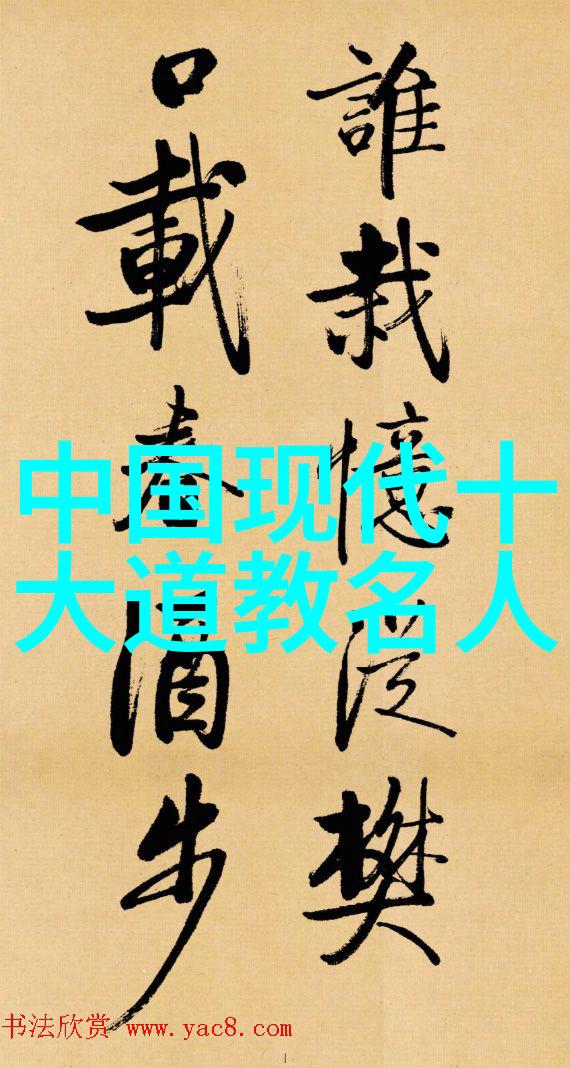 誰栽憶從樊
口載春酒步
中国现代十
大道教名人
书法欣赏 www.yac8.com